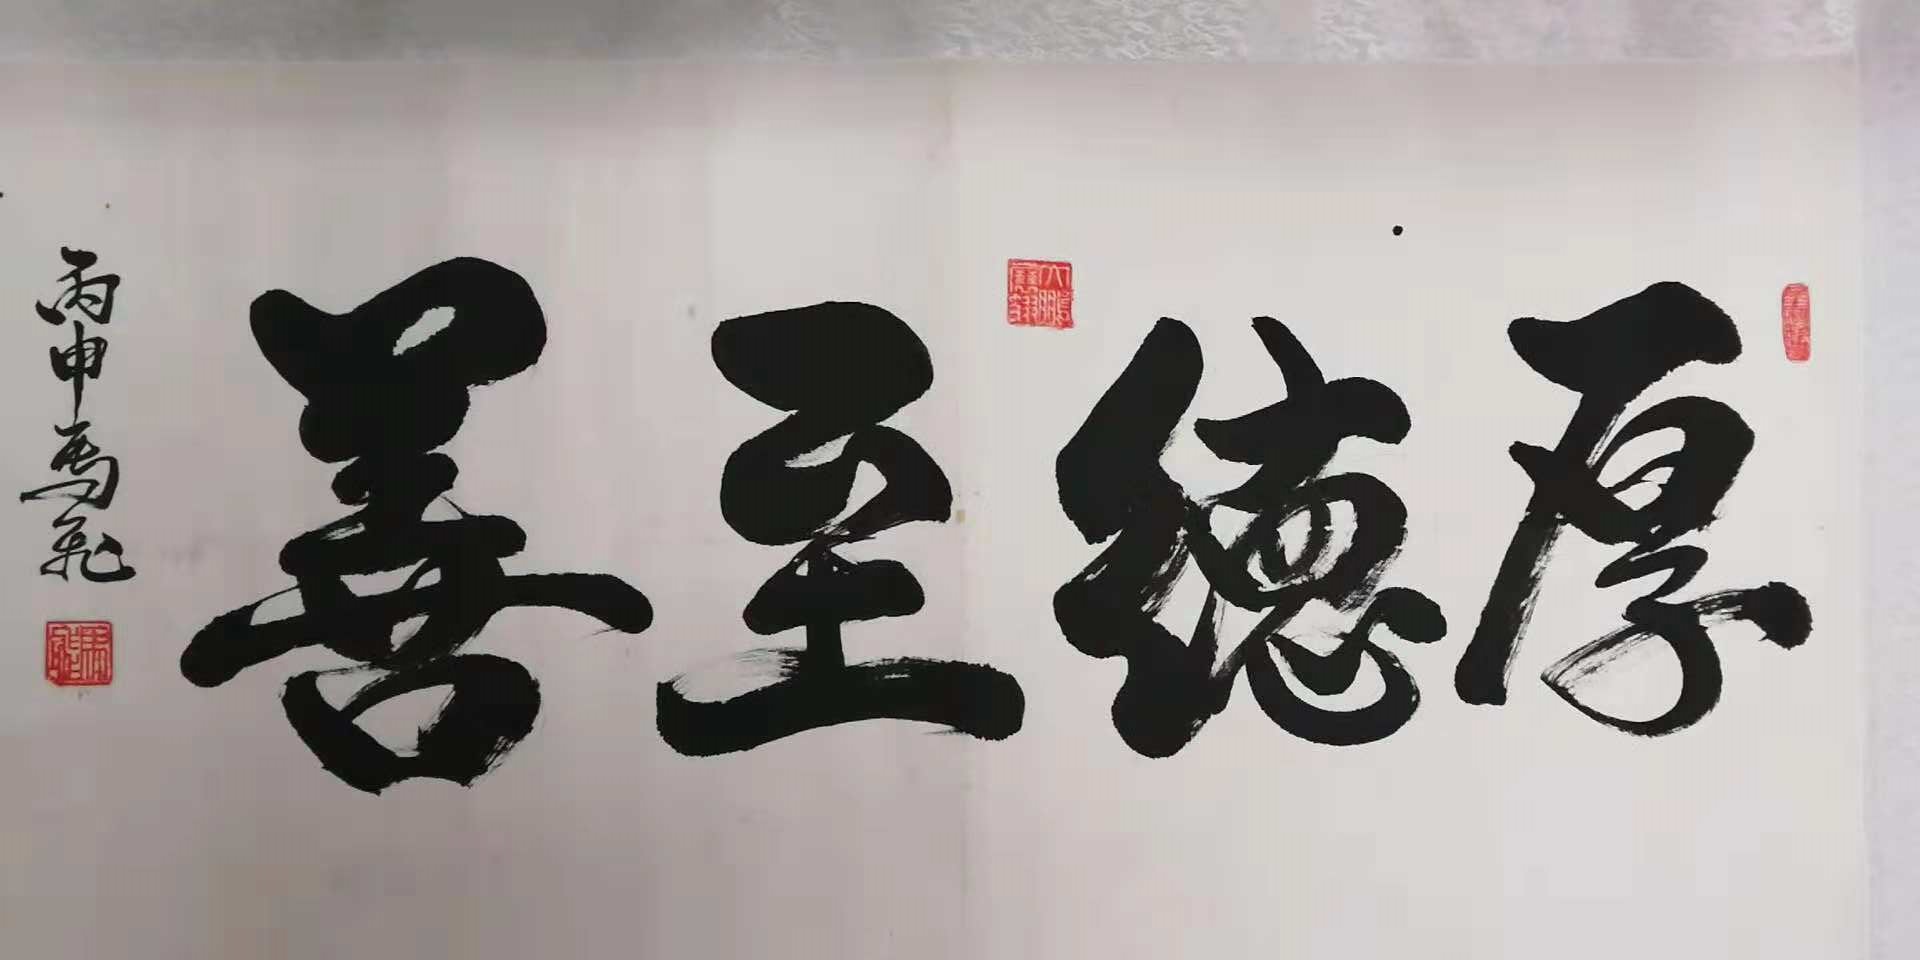 厚德至善
丙申马飞